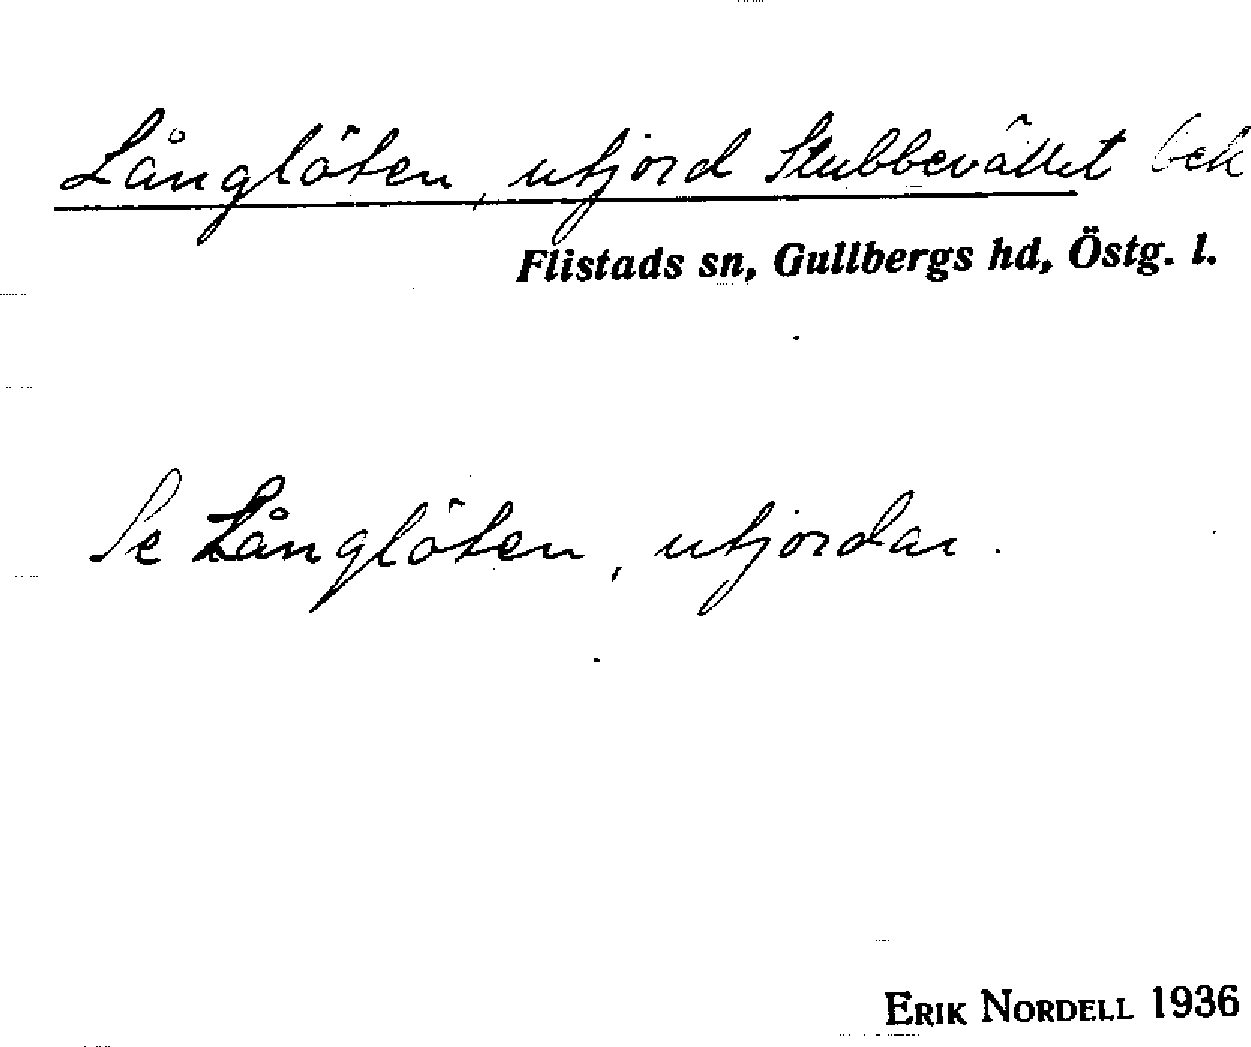 Långlöten, utjord Stubbevället bek
Flistads sn, Gullbergs hd, Östg. l.
Se Långlöten, utjordar.
ERIK NORDELL 1936